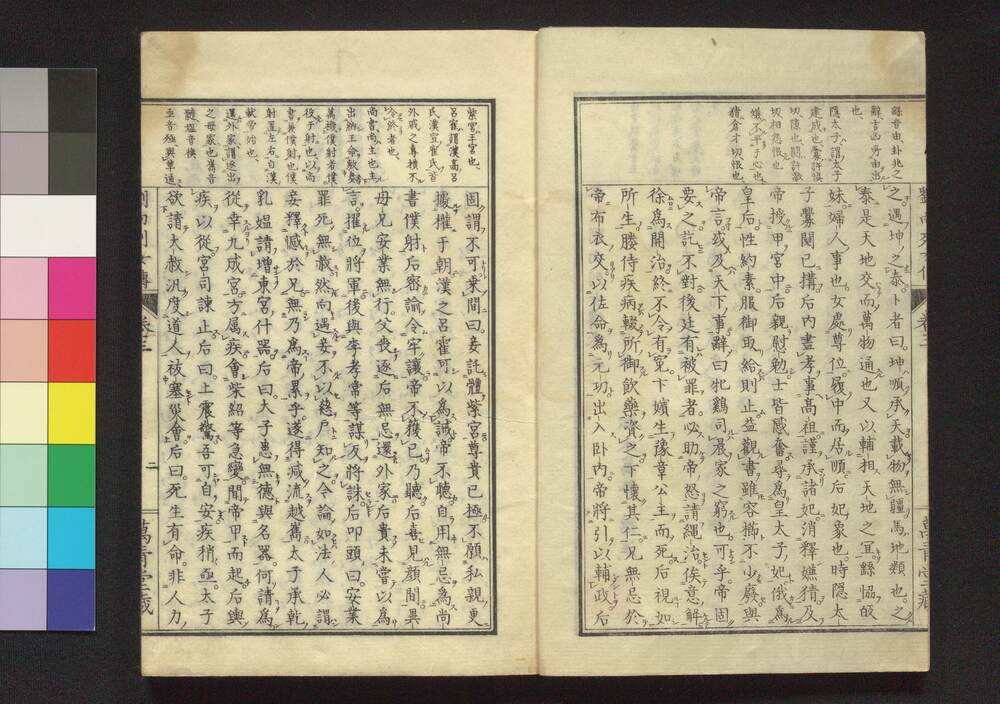 繇帝由卦兆之
辭言凶男由出
也
隱太子謂太子
建成也釁許愼
切隙也鬩許激
切相怨恨也
不平于心也
猜倉才切恨也
之遇坤之泰卜者曰坤順承天載物無疆馬地類也之
泰是天地交而萬物通也又以輔相天地之宜繇恊㱕
妹婦人事也女處尊位履中而居順后妃象也時隱太
子釁鬩已搆后内盡孝事高祖謹承諸妃消釋嫌猜及
帝授甲宮中后親慰勉士皆感奮尋爲皇太子妃俄爲
皇后性約素服御取給則止益觀書雖容擳不少廢與
帝言或及天下事辭曰牝鷄司晨家之窮也可乎帝固
要之訖不對後廷有被罪者必助帝怒請繩治俟意解
徐爲開治終不令有寃下嬪生豫章公主而死后視如
所生媵侍疾病輟所御飲藥資之下懷其仁兄無忌於
帝布衣交以佐命爲元功出入卧内帝將引以輔政后
劉向列女傳 卷三 萬青堂藏
紫宮王宮也
呂霍謂漢高呂
氏漢宣霍氏音
外戚之專横不
令終者也
尚書尚主也主
出納王命敷奏
萬機僕射者僕
役于射也以尚
書兼僕射也僕
射置左右自漢
獻帝始也
還外家謂逐出
之母家也舊音
髓媼音襖
亟音殛與革通
固謂不可乘間曰妾託體紫宮尊貴已極不願私親更
據權于朝漢之呂霍可以爲誡帝不聽自用無忌爲尚
書僕射后密諭令牢讓帝不獲已乃聽后喜見顔間異
母兄安業無行父喪逐后無忌還外家后貴未嘗以爲
言擢位將軍後與李孝常等謀反將誅后叩頭曰安業
罪死無赦然向遇妾不以慈戸知之今論如法人必謂
妾釋憾於兄無乃爲帝累乎遂得减流越舊太子承乾
乳媼請增東宮什器后曰太子患無德與名器何請爲
從幸九成宮方屬疾會柴紹等急變聞帝甲而起后輿
疾以從宮司諫止后曰上震驚吾可自安疾稍亟太子
欲請大赦汎度道人祓塞災會后曰死生有命非人力
劉向列女傳 卷三 二 萬青堂藏